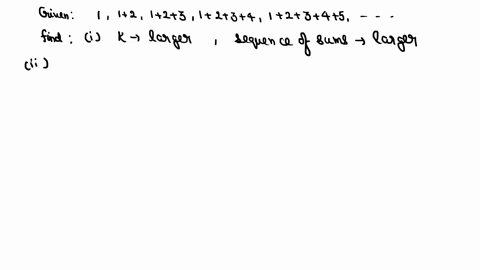 Given: 1, 1+2, 1+2+3, 1+2+3+4, 1+2+3+4+5, - - -
find: (i) K → larger, sequence of sums → larger
(ii)